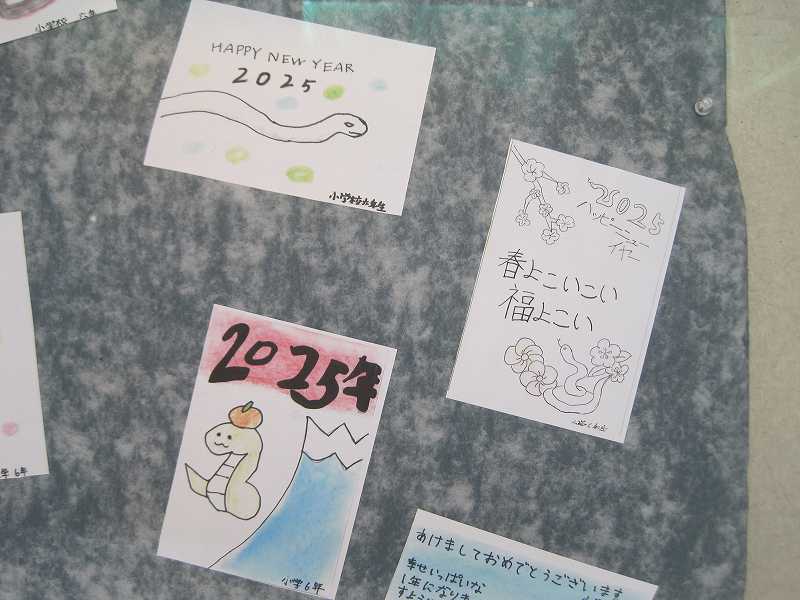 小学校 六年
HAPPY NEW YEAR
2025
小学校六年生
2025
ハッピー
ニュー
イヤー
春よこいこい
福よこい
2025年
小学6年
学6年
あけましておめでとうございます
幸せいっぱいな
1年になりま